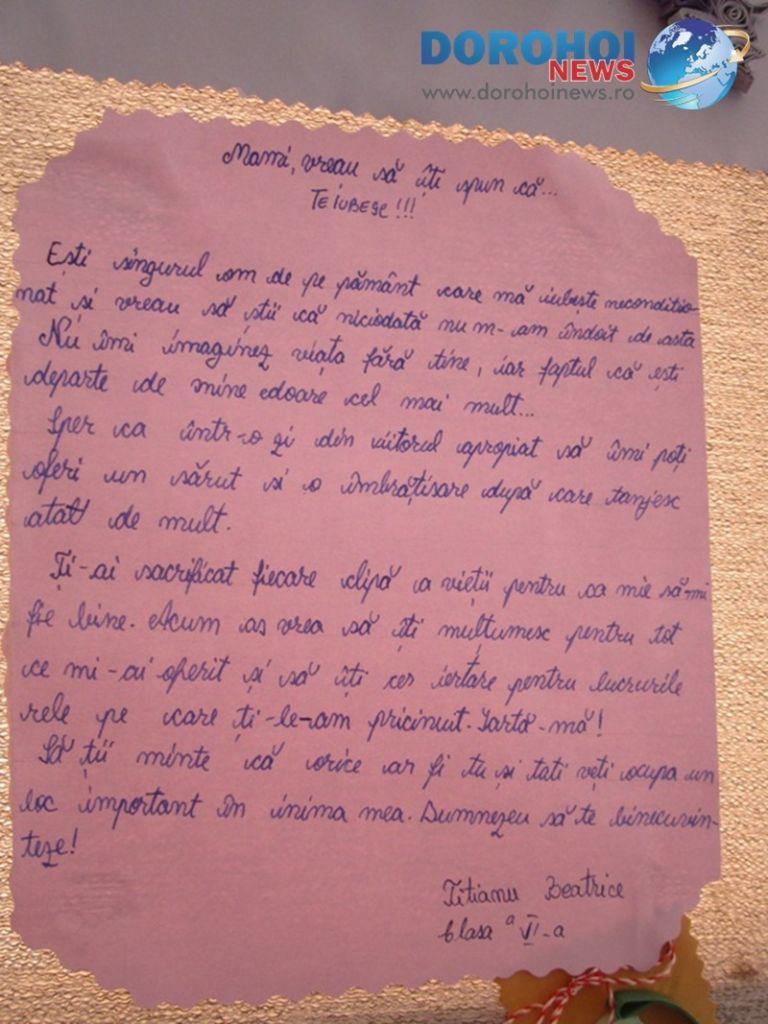 DOROHOI
NEWS
www.dorohoinews.ro
Mami, vreau să îți spun că...
TE IUBESC!!!
Ești singurul om de pe pământ care mă iubește necondițio-
nat și vreau să știi că niciodată nu m-am îndoit de asta
Nu îmi imaginez viața fără tine, iar faptul că ești
departe de mine edoare cel mai mult...
Sper ca într-o zi din viitorul apropiat să îmi poți
oferi un sărut si o îmbrățisare după care tanjesc
atat de mult.
Ți-ai sacrificat fiecare clipă a vieții pentru ca mie să-mi
fie bine. Acum as vrea să îți mulțumesc pentru tot
ce mi-ai oferit și să îți cer iertare pentru lucrurile
rele pe care ți-le-am pricinuit. Iartă-mă!
Să ții minte că orice ar fi tu și tati veți ocupa un
loc important în inima mea. Dumnezeu să te binecuvin-
teze!
Titianu Beatrice
Clasa a VI-a